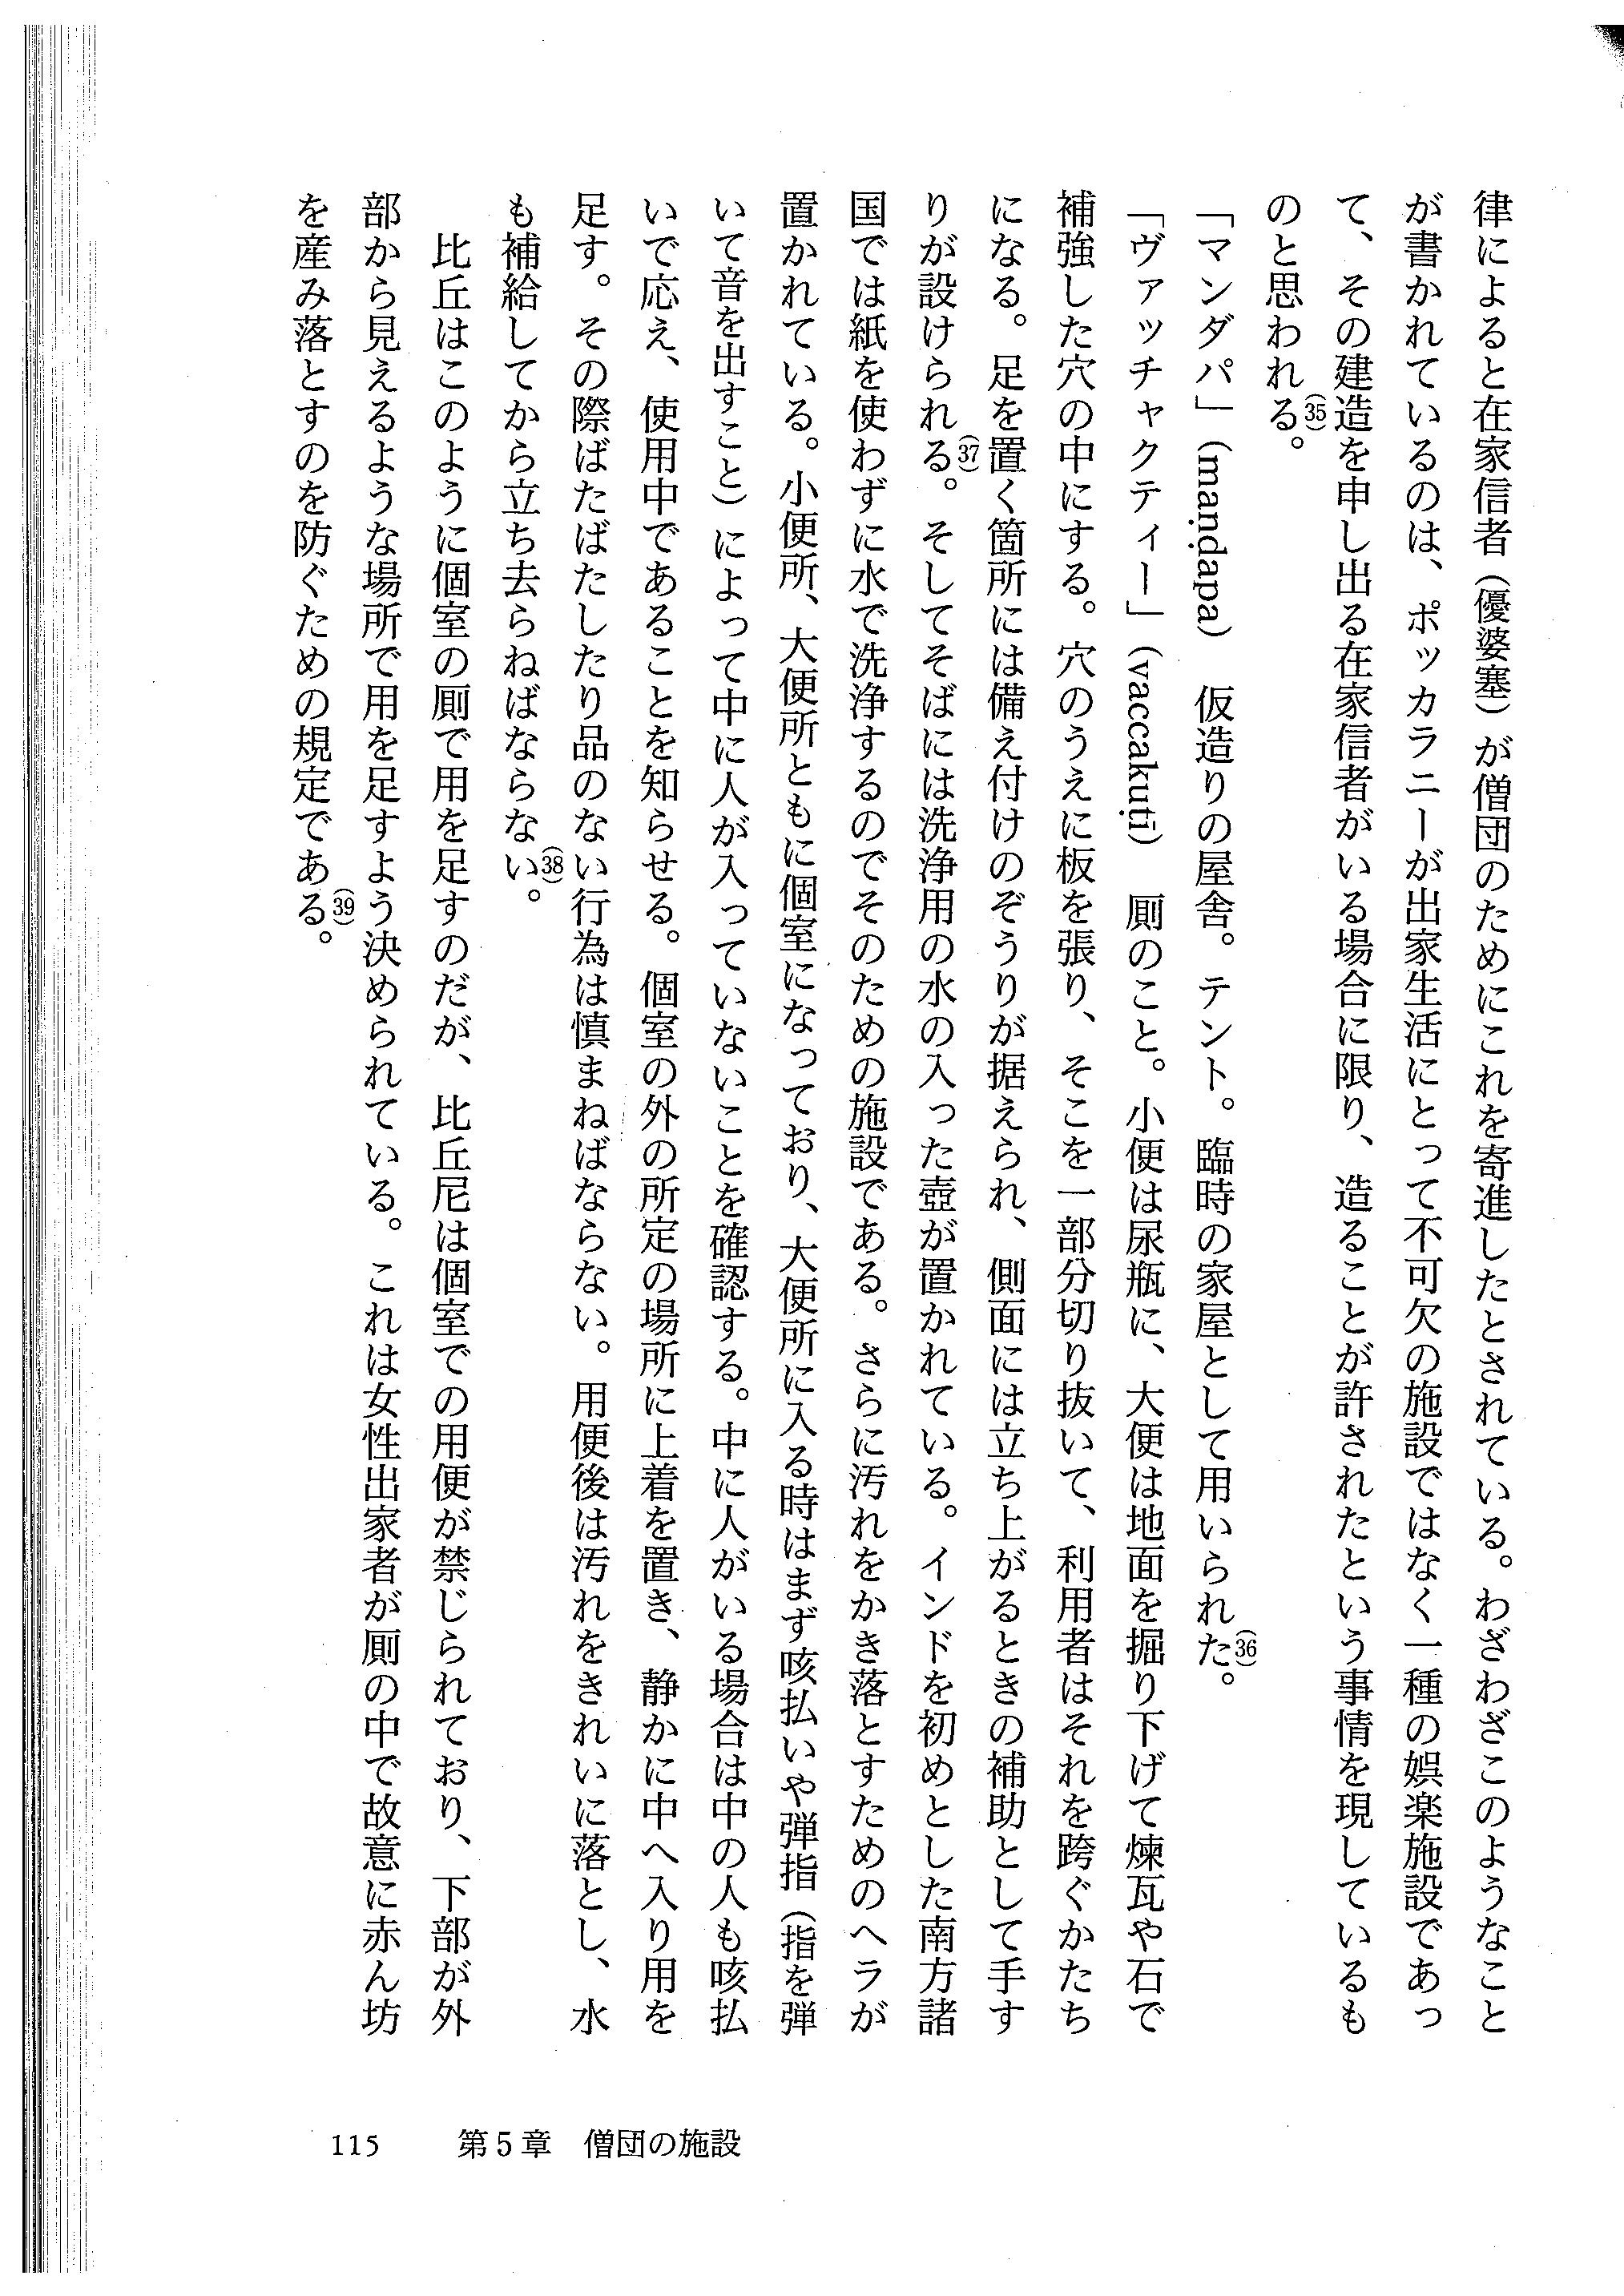 律によると在家信者（優婆塞）が僧団のためにこれを寄進したとされている。わざわざこのようなこと
が書かれているのは、ポッカラニーが出家生活にとって不可欠の施設ではなく一種の娯楽施設であっ
て、その建造を申し出る在家信者がいる場合に限り、造ることが許されたという事情を現しているも
のと思われる(35)。
「マンダパ」（maṇḍapa）　仮造りの屋舎。テント。臨時の家屋として用いられた(36)。
「ヴァッチャクティー」（vaccakuṭī）　厠のこと。小便は尿瓶に、大便は地面を掘り下げて煉瓦や石で
補強した穴の中にする。穴のうえに板を張り、そこを一部分切り抜いて、利用者はそれを跨ぐかたち
になる。足を置く箇所には備え付けのぞうりが据えられ、側面には立ち上がるときの補助として手す
りが設けられる(37)。そしてそばには洗浄用の水の入った壺が置かれている。インドを初めとした南方諸
国では紙を使わずに水で洗浄するのでそのための施設である。さらに汚れをかき落とすためのヘラが
置かれている。小便所、大便所ともに個室になっており、大便所に入る時はまず咳払いや弾指（指を弾
いて音を出すこと）によって中に人が入っていないことを確認する。中に人がいる場合は中の人も咳払
いで応え、使用中であることを知らせる。個室の外の所定の場所に上着を置き、静かに中へ入り用を
足す。その際ばたばたしたり品のない行為は慎まねばならない。用便後は汚れをきれいに落とし、水
も補給してから立ち去らねばならない(38)。
　比丘はこのように個室の厠で用を足すのだが、比丘尼は個室での用便が禁じられており、下部が外
部から見えるような場所で用を足すよう決められている。これは女性出家者が厠の中で故意に赤ん坊
を産み落とすのを防ぐための規定である(39)。
115　第5章　僧団の施設